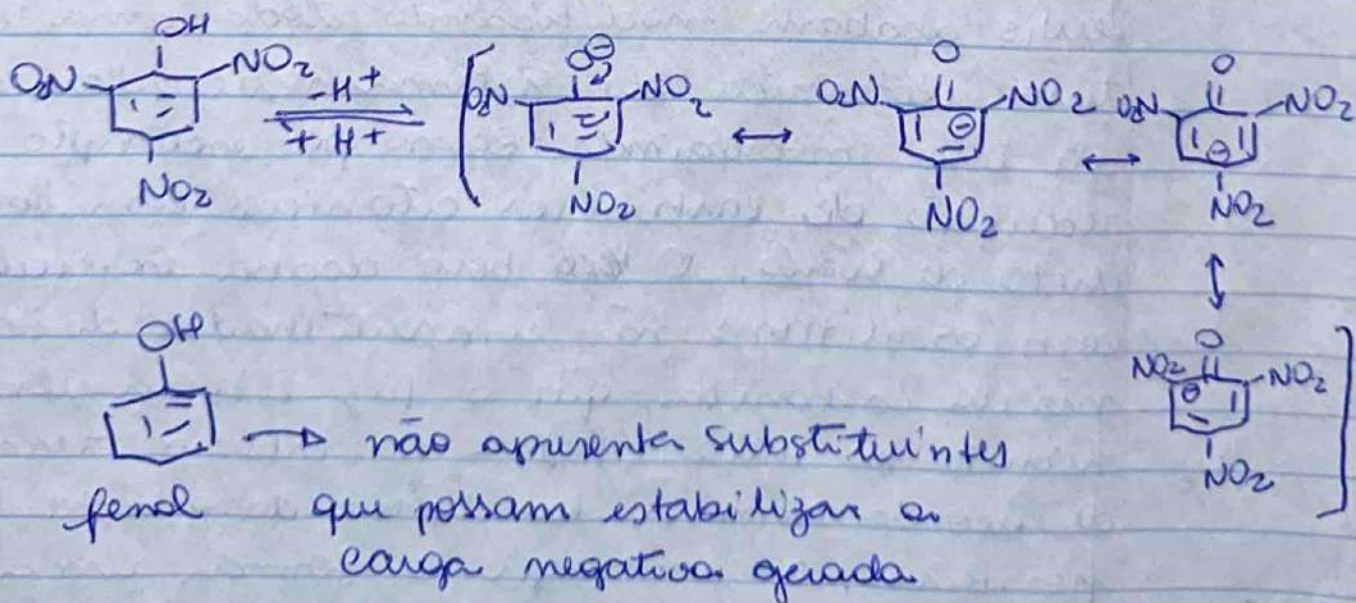 OH
O₂N NO₂
NO₂
-H⁺
+H⁺
O⊖
O₂N NO₂
NO₂
↔
O
O₂N NO₂
⊖
NO₂
↔
O
O₂N NO₂
⊖
NO₂
↕
O
NO₂ NO₂
⊖
NO₂
OH
fenol
→ não apresenta substituintes
que possam estabilizar a
carga negativa gerada